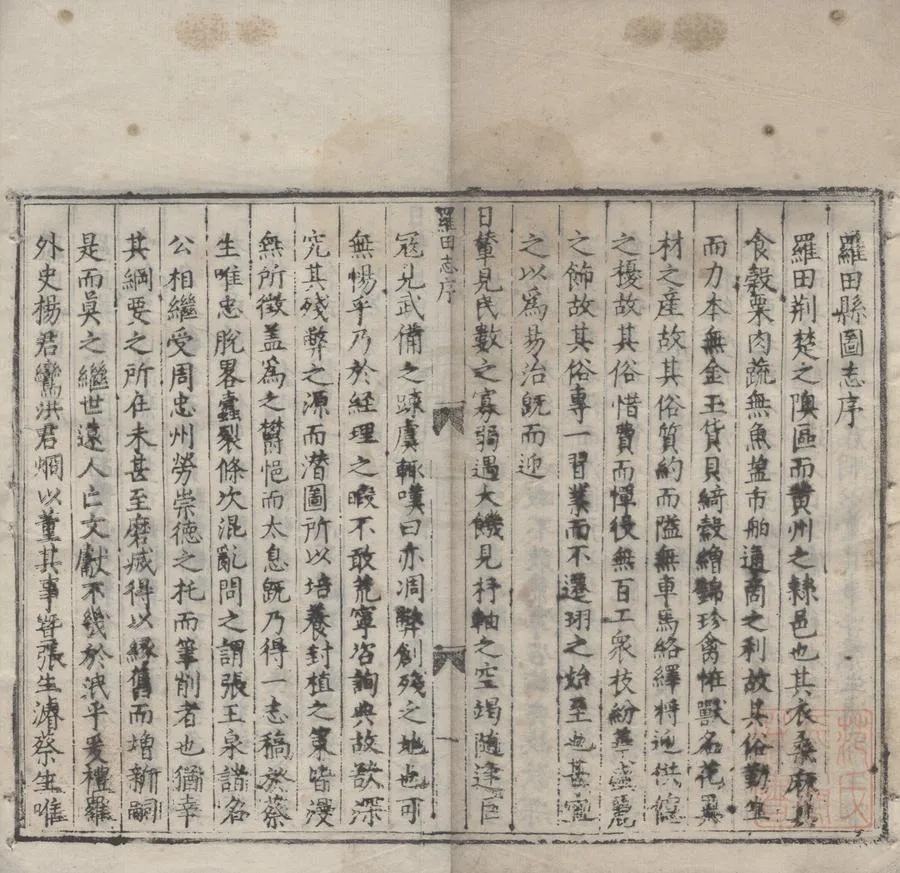 羅田縣圖志序
羅田荆楚之隩區而黄州之隸邑也其衣桑麻其
食穀粟肉蔬無魚塩市舶通商之利故其俗勤生
而力本無金玉貨貝綺縠繒錦珍禽恠獸名花異
材之産故其俗質約而隘無車馬絡繹將迎供億
之擾故其俗惜費而憚役無百工衆枝紛華盛麗
之飾故其俗專一習業而不遷珝之始至也甚
之以爲易治旣而迎
日輦見民數之寡弱遇大饑見杼軸之空竭隨逢巨
羅田志序
冦見武備之踈虞輙嘆曰亦凋弊創殘之地也可
無惕乎乃於經理之暇不敢荒寧咨詢典故欲深
究其殘弊之源而潜圖所以培養封植之策皆漫
無所徵盖爲之欝悒而太息旣乃得一志稿於蔡
生唯忠脫畧蠧裂條次混亂問之謂張王泉諸名
公相繼受周忠州勞崇德之托而筆削者也猶幸
其綱要之所在未甚至磨㓕得以緣舊而增新嗣
是而眞之繼世遠人亡文獻不幾於泯乎爰禮羅
外史楊君鸞洪君烱以董其事晵張生濬蔡生唯